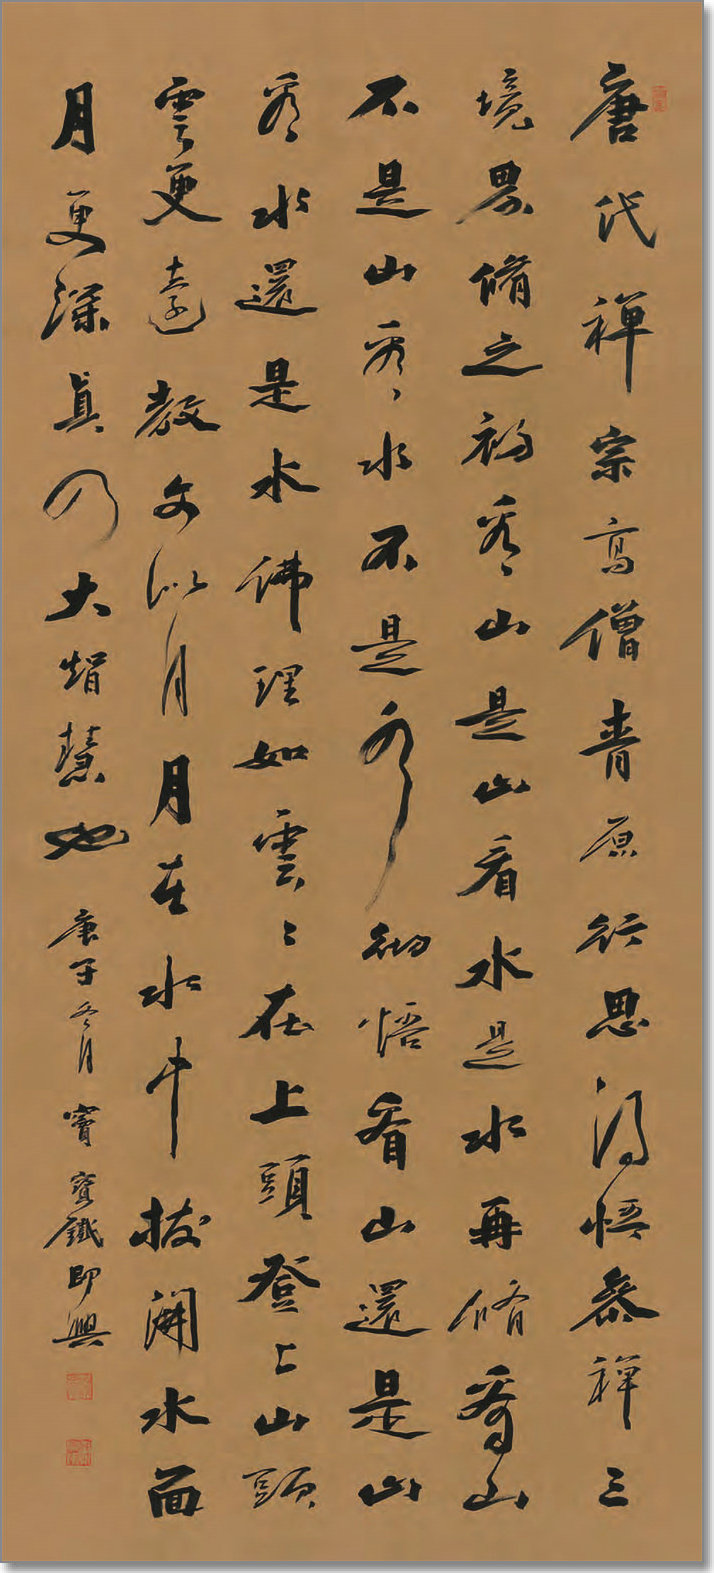 唐代禪宗高僧青原行思得悟參禪三
境界脩之初看山是山看水是水再脩看山
不是山看水不是水彻悟看山還是山
看水還是水佛理如雲々在上頭登上山頭
雲更遠教文似月月在水中拔開水面
月更深真乃大智慧也
庚子冬月竇寶鐵即興